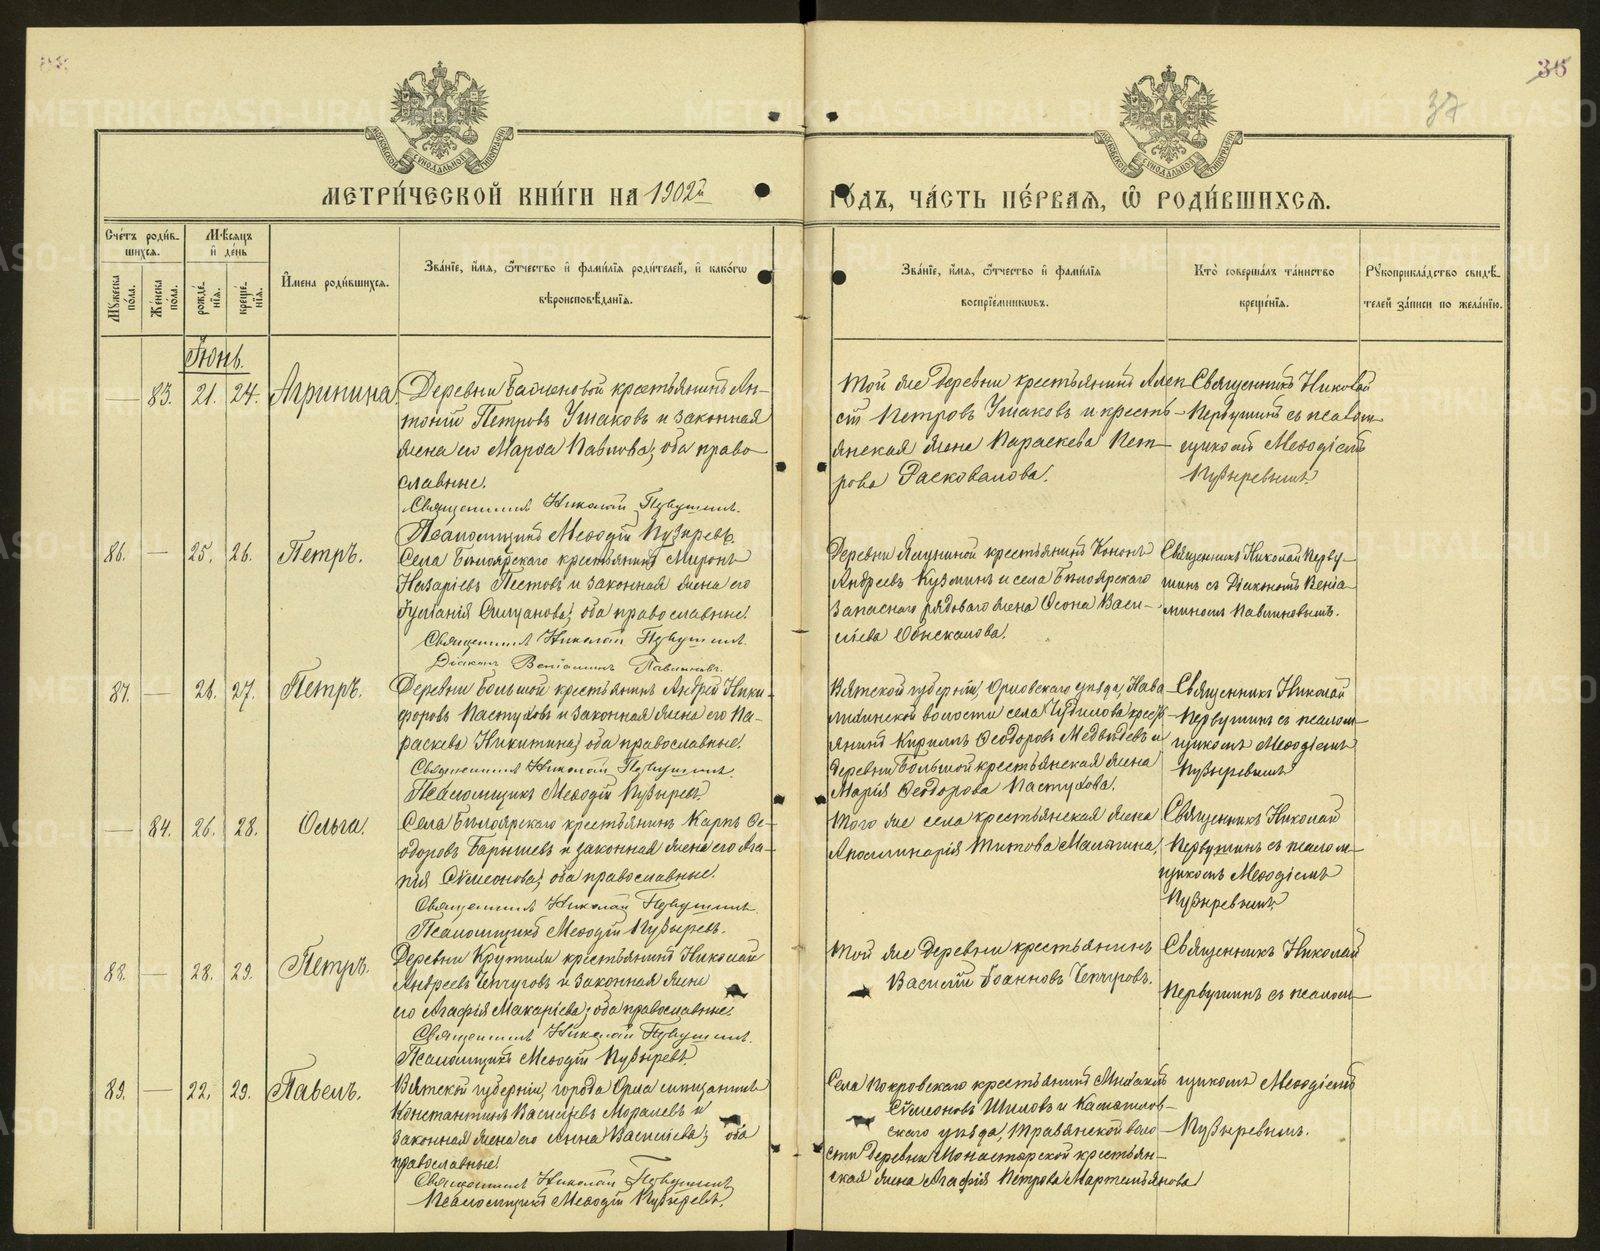 36
37
МОСКОВСКОЙ СѴНОДАЛЬНОЙ ТИПОГРАФІИ
МОСКОВСКОЙ СѴНОДАЛЬНОЙ ТИПОГРАФІИ
МЕТРИ́ЧЕСКОЙ КНИ́ГИ НА 1902й
ГО́ДЪ, ЧА́СТЬ ПЕ́РВАЯ, Ѿ РОДИ́ВШИХСЯ.
Сче́тъ роди́в-
шихся.
Мѣ́сяцъ
и́ де́нь
Му́жеска
по́ла.
Же́нска
по́ла.
рожде́-
нія.
креще́-
нія.
И҆мена роди́вшихся.
Зва́ніе, и҆́мя, ѻ҆́тчество и҆ фами́лія роди́телей, и҆ како́гѡ
вѣроисповѣ́данія.
Зва́ніе, и҆́мя, ѻ҆́тчество и҆ фами́лія
воспріе́мниковъ.
Кто̀ соверша́лъ та́инство
креще́нія.
Рукоприкла́дство свидѣ́-
телей за́писи по жела́нію.
Іюнь.
— 83. 21. 24. Агрипина.
Деревни крестьянинъ Ан-
тоній Петровъ Ушаковъ и законная
жена его Марѳа Павлова; оба право-
славные.
Священникъ Николай Первушинъ.
Псаломщикъ Меѳодій Пузыревъ.
Той же деревни крестьянинъ Алек-
сій Петровъ Ушаковъ и кресть-
янская жена Параскева Пет-
рова Расковалова.
Священникъ Николай
Первушинъ съ псалом-
щикомъ Меѳодіемъ
Пузыревымъ.
86. — 25. 26. Петръ.
Села Бѣлоярскаго крестьянинъ Миронъ
Назаріевъ Пестовъ и законная жена его
Іуліанія оба православные.
Священникъ Николай Первушинъ.
Діаконъ Веніаминъ Павлиновъ.
Деревни крестьянинъ Кононъ
Андреевъ Кузминъ и села Бѣлоярскаго
запаснаго рядоваго жена Васи-
лиева
Священникъ Николай Перву-
шинъ съ Діакономъ Веніа-
миномъ Павлиновымъ.
87. — 26. 27. Петръ.
Деревни Большой крестьянинъ Андрей Ники-
форовъ Пастуховъ и законная жена его Па-
раскева Никитина; оба православные.
Священникъ Николай Первушинъ.
Псаломщикъ Меѳодій Пузыревъ.
Вятской губерніи, Орловскаго уѣзда,
волости села крест-
янинъ Кириллъ Ѳеодоровъ Медвѣдевъ и
деревни Большой крестьянская жена
Марія Ѳеодорова Пастухова.
Священникъ Николай
Первушинъ съ псалом-
щикомъ Меѳодіемъ
Пузыревымъ
— 84. 26. 28. Ольга.
Села Бѣлоярскаго крестьянинъ Карпъ Ѳе-
одоровъ Барышевъ и законная жена его Ага-
пія Сѵмеонова; оба православные.
Священникъ Николай Первушинъ.
Псаломщикъ Меѳодій Пузыревъ.
Того же села крестьянская жена
Аполлинарія Титова Малыгина.
Священникъ Николай
Первушинъ съ псалом-
щикомъ Меѳодіемъ
Пузыревымъ
88. — 28. 29. Петръ.
Деревни Крутихи крестьянинъ Николай
Андреевъ Чепчуговъ и законная жена
его Агафія Макаріева; оба православные.
Священникъ Николай Первушинъ.
Псаломщикъ Меѳодій Пузыревъ
Той же деревни крестьянинъ
Василій Іоанновъ
Священникъ Николай
Первушинъ съ псалом-
89. — 22. 29. Павелъ.
Вятской губерніи, города Орла мѣщанинъ
Константинъ Василіевъ Моралевъ и
законная жена его Анна Василіева; оба
православные.
Священникъ Николай Первушинъ
Псаломщикъ Меѳодій Пузыревъ.
Села Покровскаго крестьянинъ Михаилъ
Сѵмеоновъ Шиловъ и Камышлов-
скаго уѣзда, Травянской воло-
сти деревни Монастырской крестьян-
ская жена Агафія Петрова Мартемьянова
щикомъ Меѳодіемъ
Пузыревымъ.